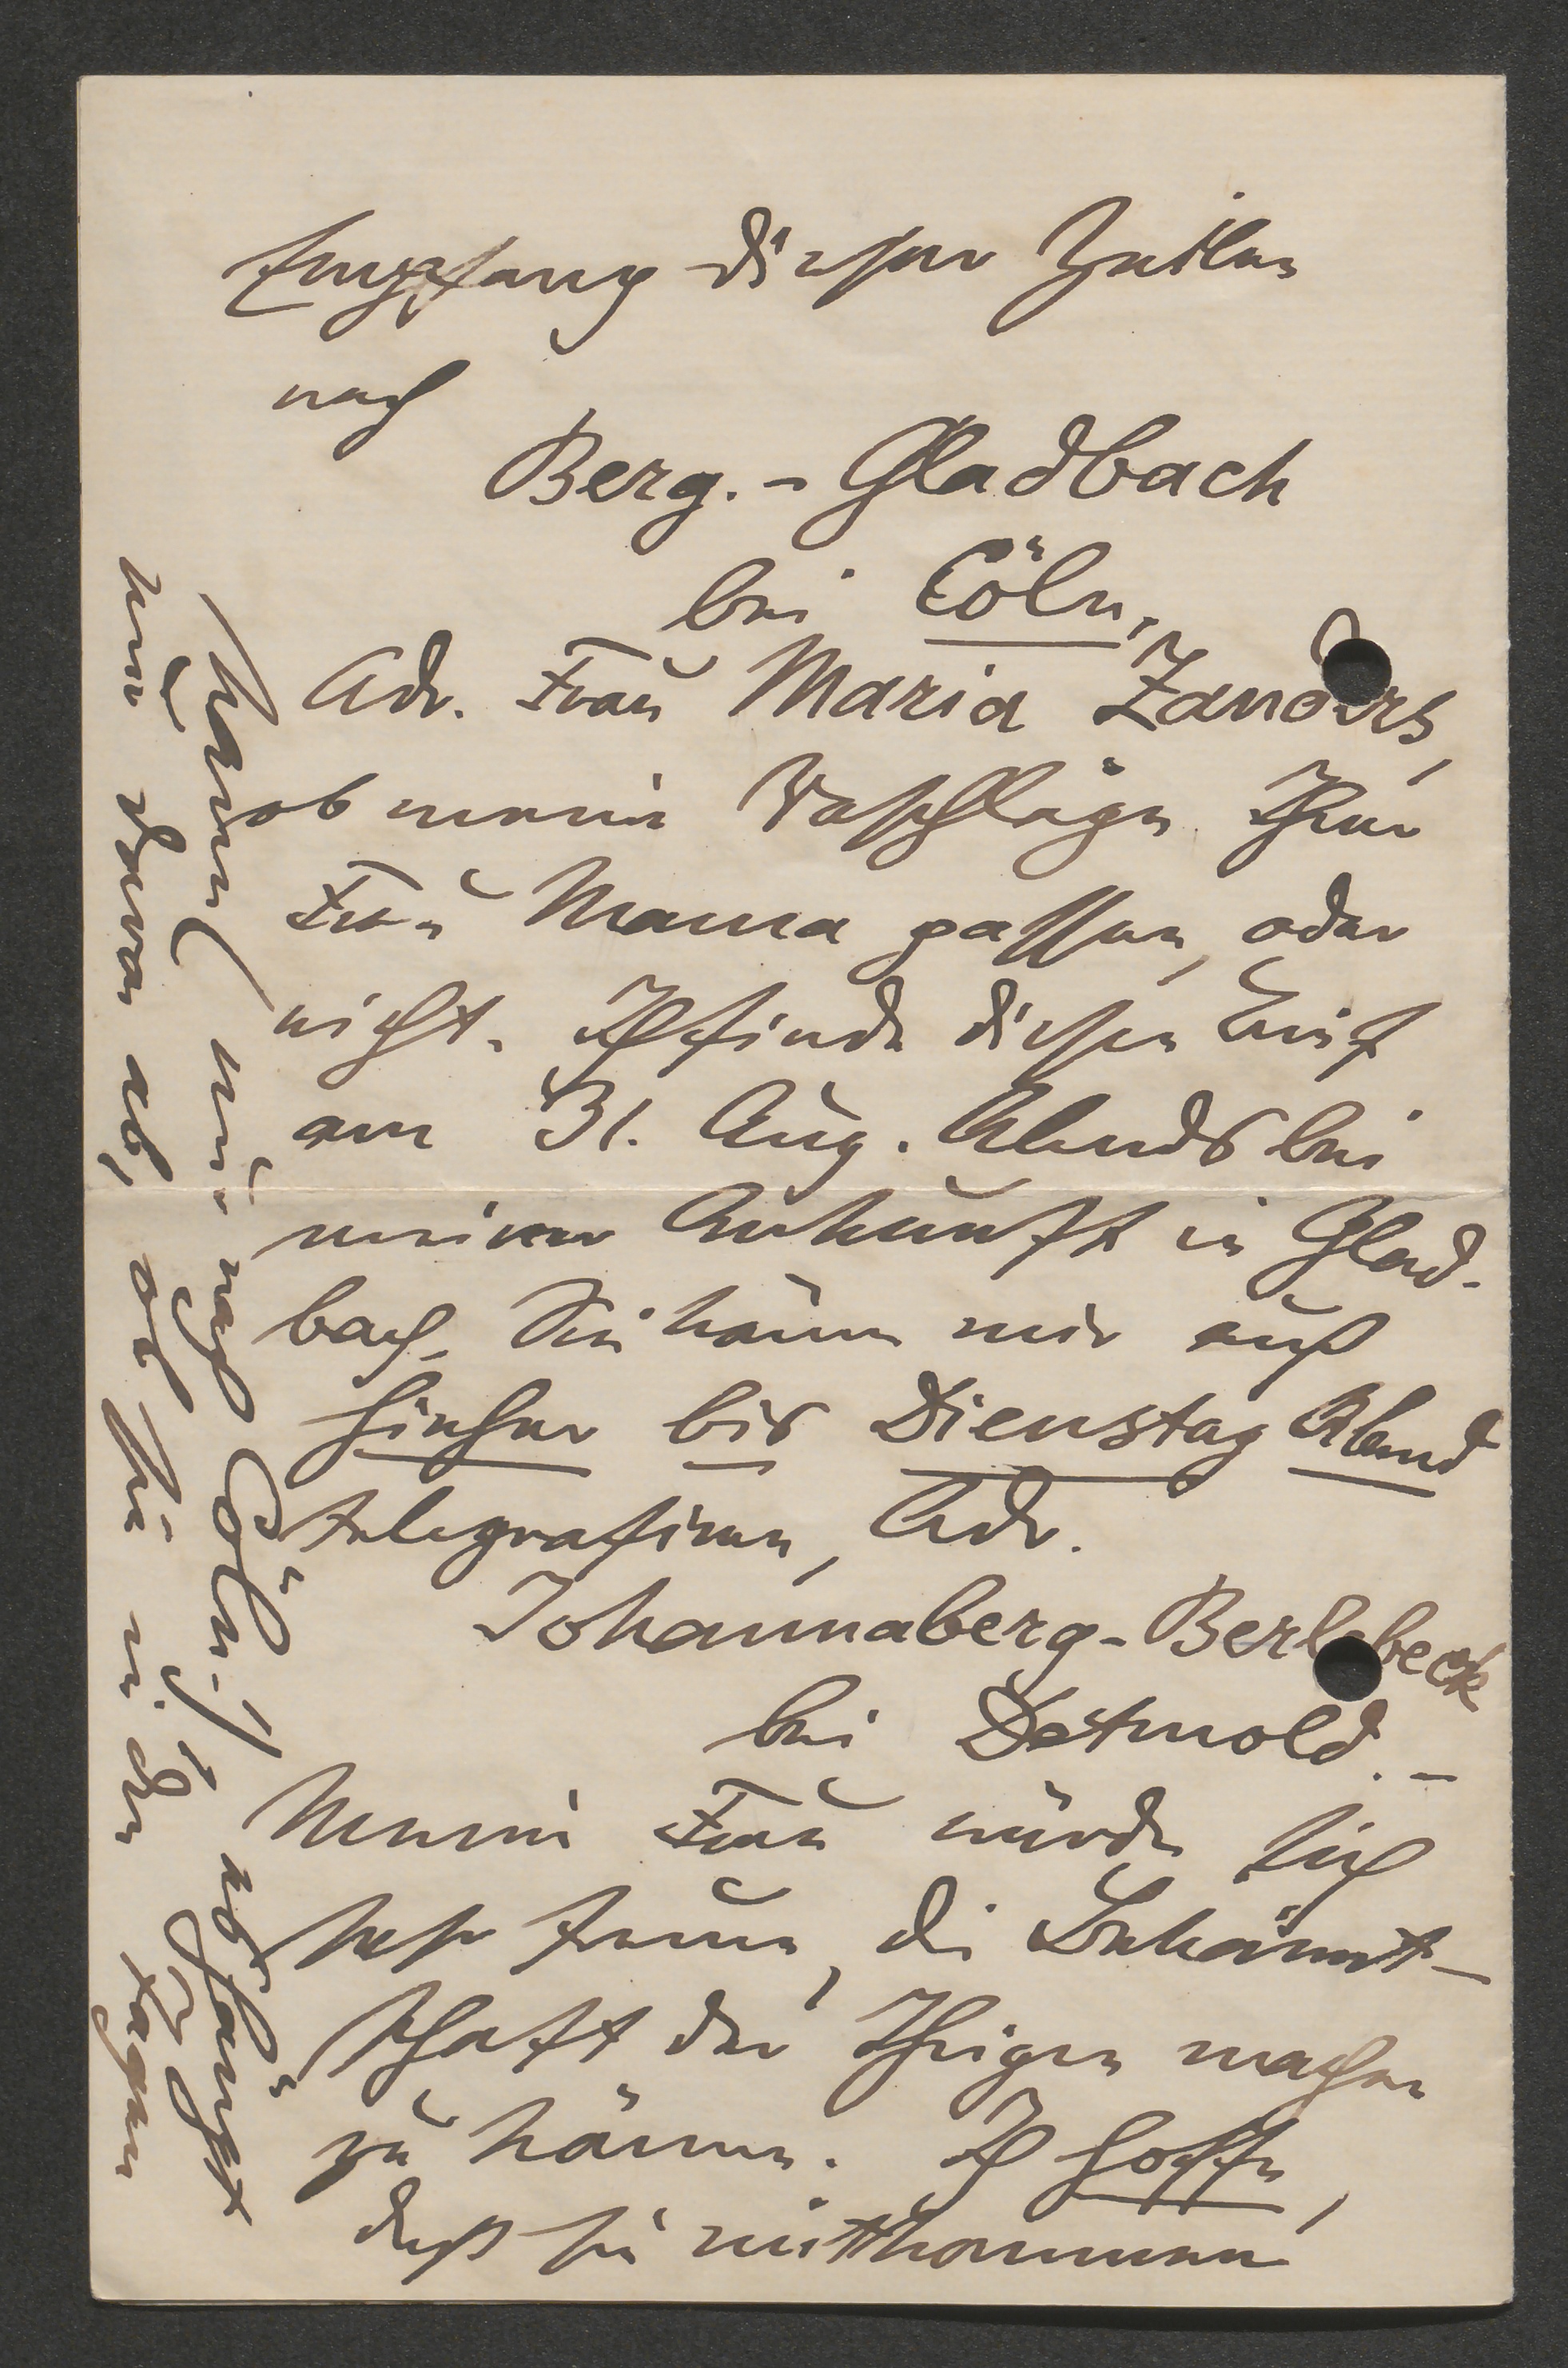 Empfang dieser Zeilen
nach
Berg.-Gladbach
bei Cöln,
Adr. Frau Maria Zanders,
ob meine Vorschläge Ihrer
Frau Mama passen, oder
nicht. Ich finde diesen Brief
am 31. Aug. Abends bei
meiner Ankunft in Glad-
bach. Sie können mir auch
hieher bis Dienstag Abend
telegrafiren, Adr.
Johannaberg-Berlebeck
bei Detmold.-
Meine Frau würde sich
sehr freuen, die Bekannt-
schaft der Ihrigen machen
zu können. Ich hoffe,
daß sie mitkommen
kann (mit nach Cöln.) Es hängt
nur davon ab, ob sie in den Tagen